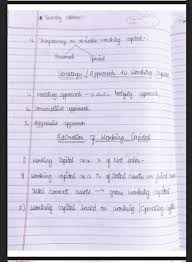 4. Temporary or variable working capital.
Seasonal special
Strategy / Approach to Working Capital
1. Matching approach hedging approach
2. Conservative approach
3. Aggressive approach
Estimation of Working Capital
I) Working Capital as a % of Net sales
II) Working capital as a % of Total assets or fixed
Total current assets → gross working capital
III) Working capital based on working / Operating cycle